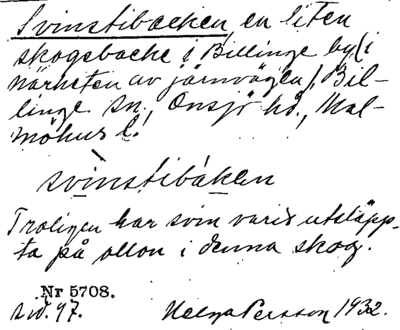 Svinstibacken, en liten
skogsbacke i Billinge by (i
närheten av järnvägen), Bil-
linge sn., Onsjö hd., Mal-
möhus l.
svinstibáken
Troligen har svin varit utsläpp-
ta på ollon i denna skog.
Nr 5708.
sid. 47.    Helga Persson 1932.